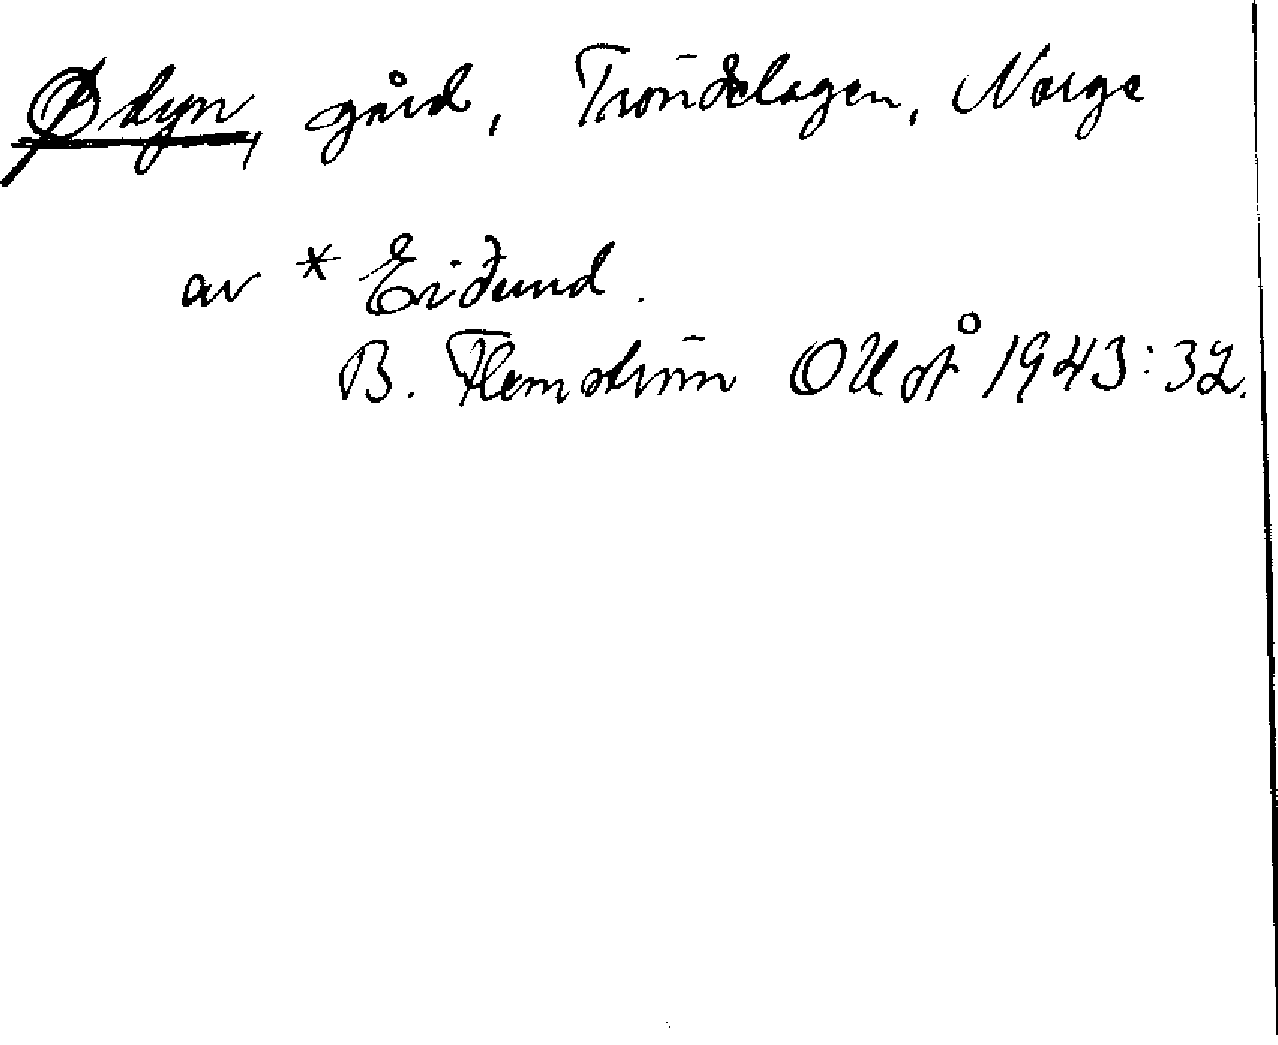 Ødyn, gård, Tröndelagen, Norge
av * Eiðund.
B. Flemström OUSÅ 1943:32.